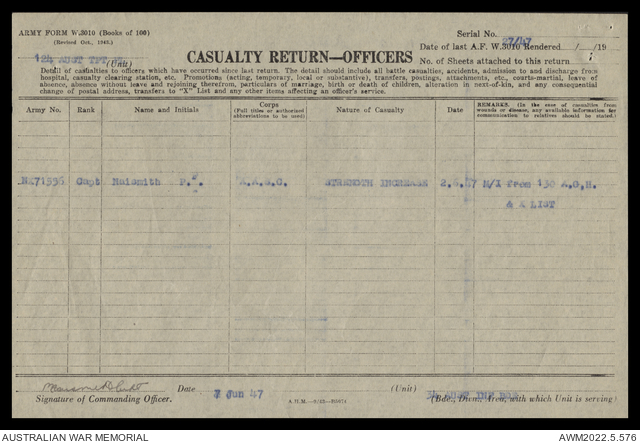 ARMY FORM W.3010 (Books of 100)
(Revised Oct., 1942.)
Serial No. 27/47
Date of last A.F. W.3010 Rendered / /19
124 AUST TPT (Unit)
CASUALTY RETURN—OFFICERS
No. of Sheets attached to this return
Detail of casualties to officers which have occurred since last return. The detail should include all battle casualties, accidents, admission to and discharge from
hospital, casualty clearing station, etc. Promotions (acting, temporary, local or substantive), transfers, postings, attachments, etc., courts-martial, leave of
absence, absence without leave and rejoining therefrom, particulars of marriage, birth or death of children, alteration in next-of-kin, and any consequential
change of postal address, transfers to "X" List and any other items affecting an officer's service.
Army No. Rank Name and Initials Corps Nature of Casualty Date REMARKS. (In the case of casualties from
(Full titles or authorised wounds or disease, any available information for
abbreviations to be used) communication to relatives should be stated.)
NX71596 Capt Naismith P. A.A.S.C. STRENGTH INCREASE 2.6.47 M/I from 130 A.G.H.
& X LIST
Date 7 Jun 47 (Unit)
Signature of Commanding Officer. (Bde., Divn., Area, with which Unit is serving)
AUSTRALIAN WAR MEMORIAL AWM2022.5.576